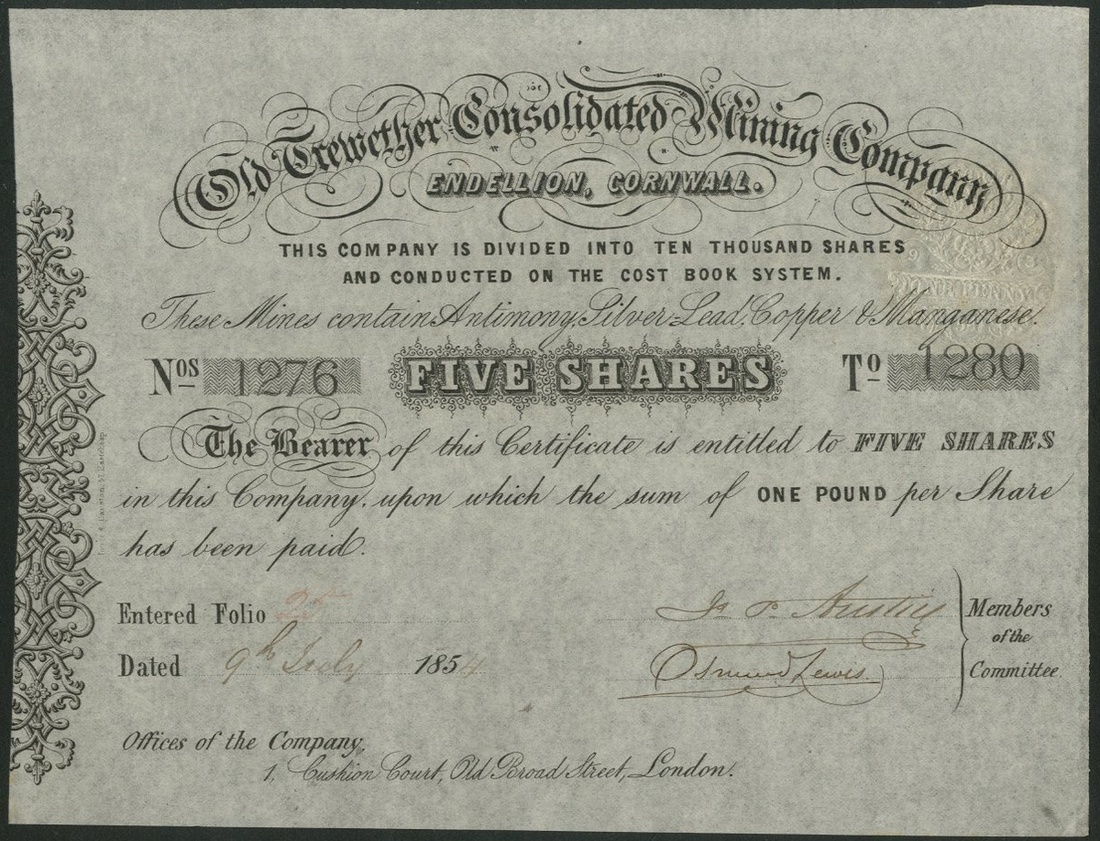 Old Trewether Consolidated Mining Company
ENDELLION, CORNWALL.
THIS COMPANY IS DIVIDED INTO TEN THOUSAND SHARES
AND CONDUCTED ON THE COST BOOK SYSTEM.
These Mines contain Antimony, Silver-Lead, Copper & Manganese.
Nos 1276 FIVE SHARES To 1280
ONE PENNY
The Bearer of this Certificate is entitled to FIVE SHARES
in this Company, upon which the sum of ONE POUND per Share
has been paid.
Entered Folio 25
Dated 9th July 1854
Austin
Osmund Lewis
Members
of the
Committee
Offices of the Company,
1, Cushion Court, Old Broad Street, London.